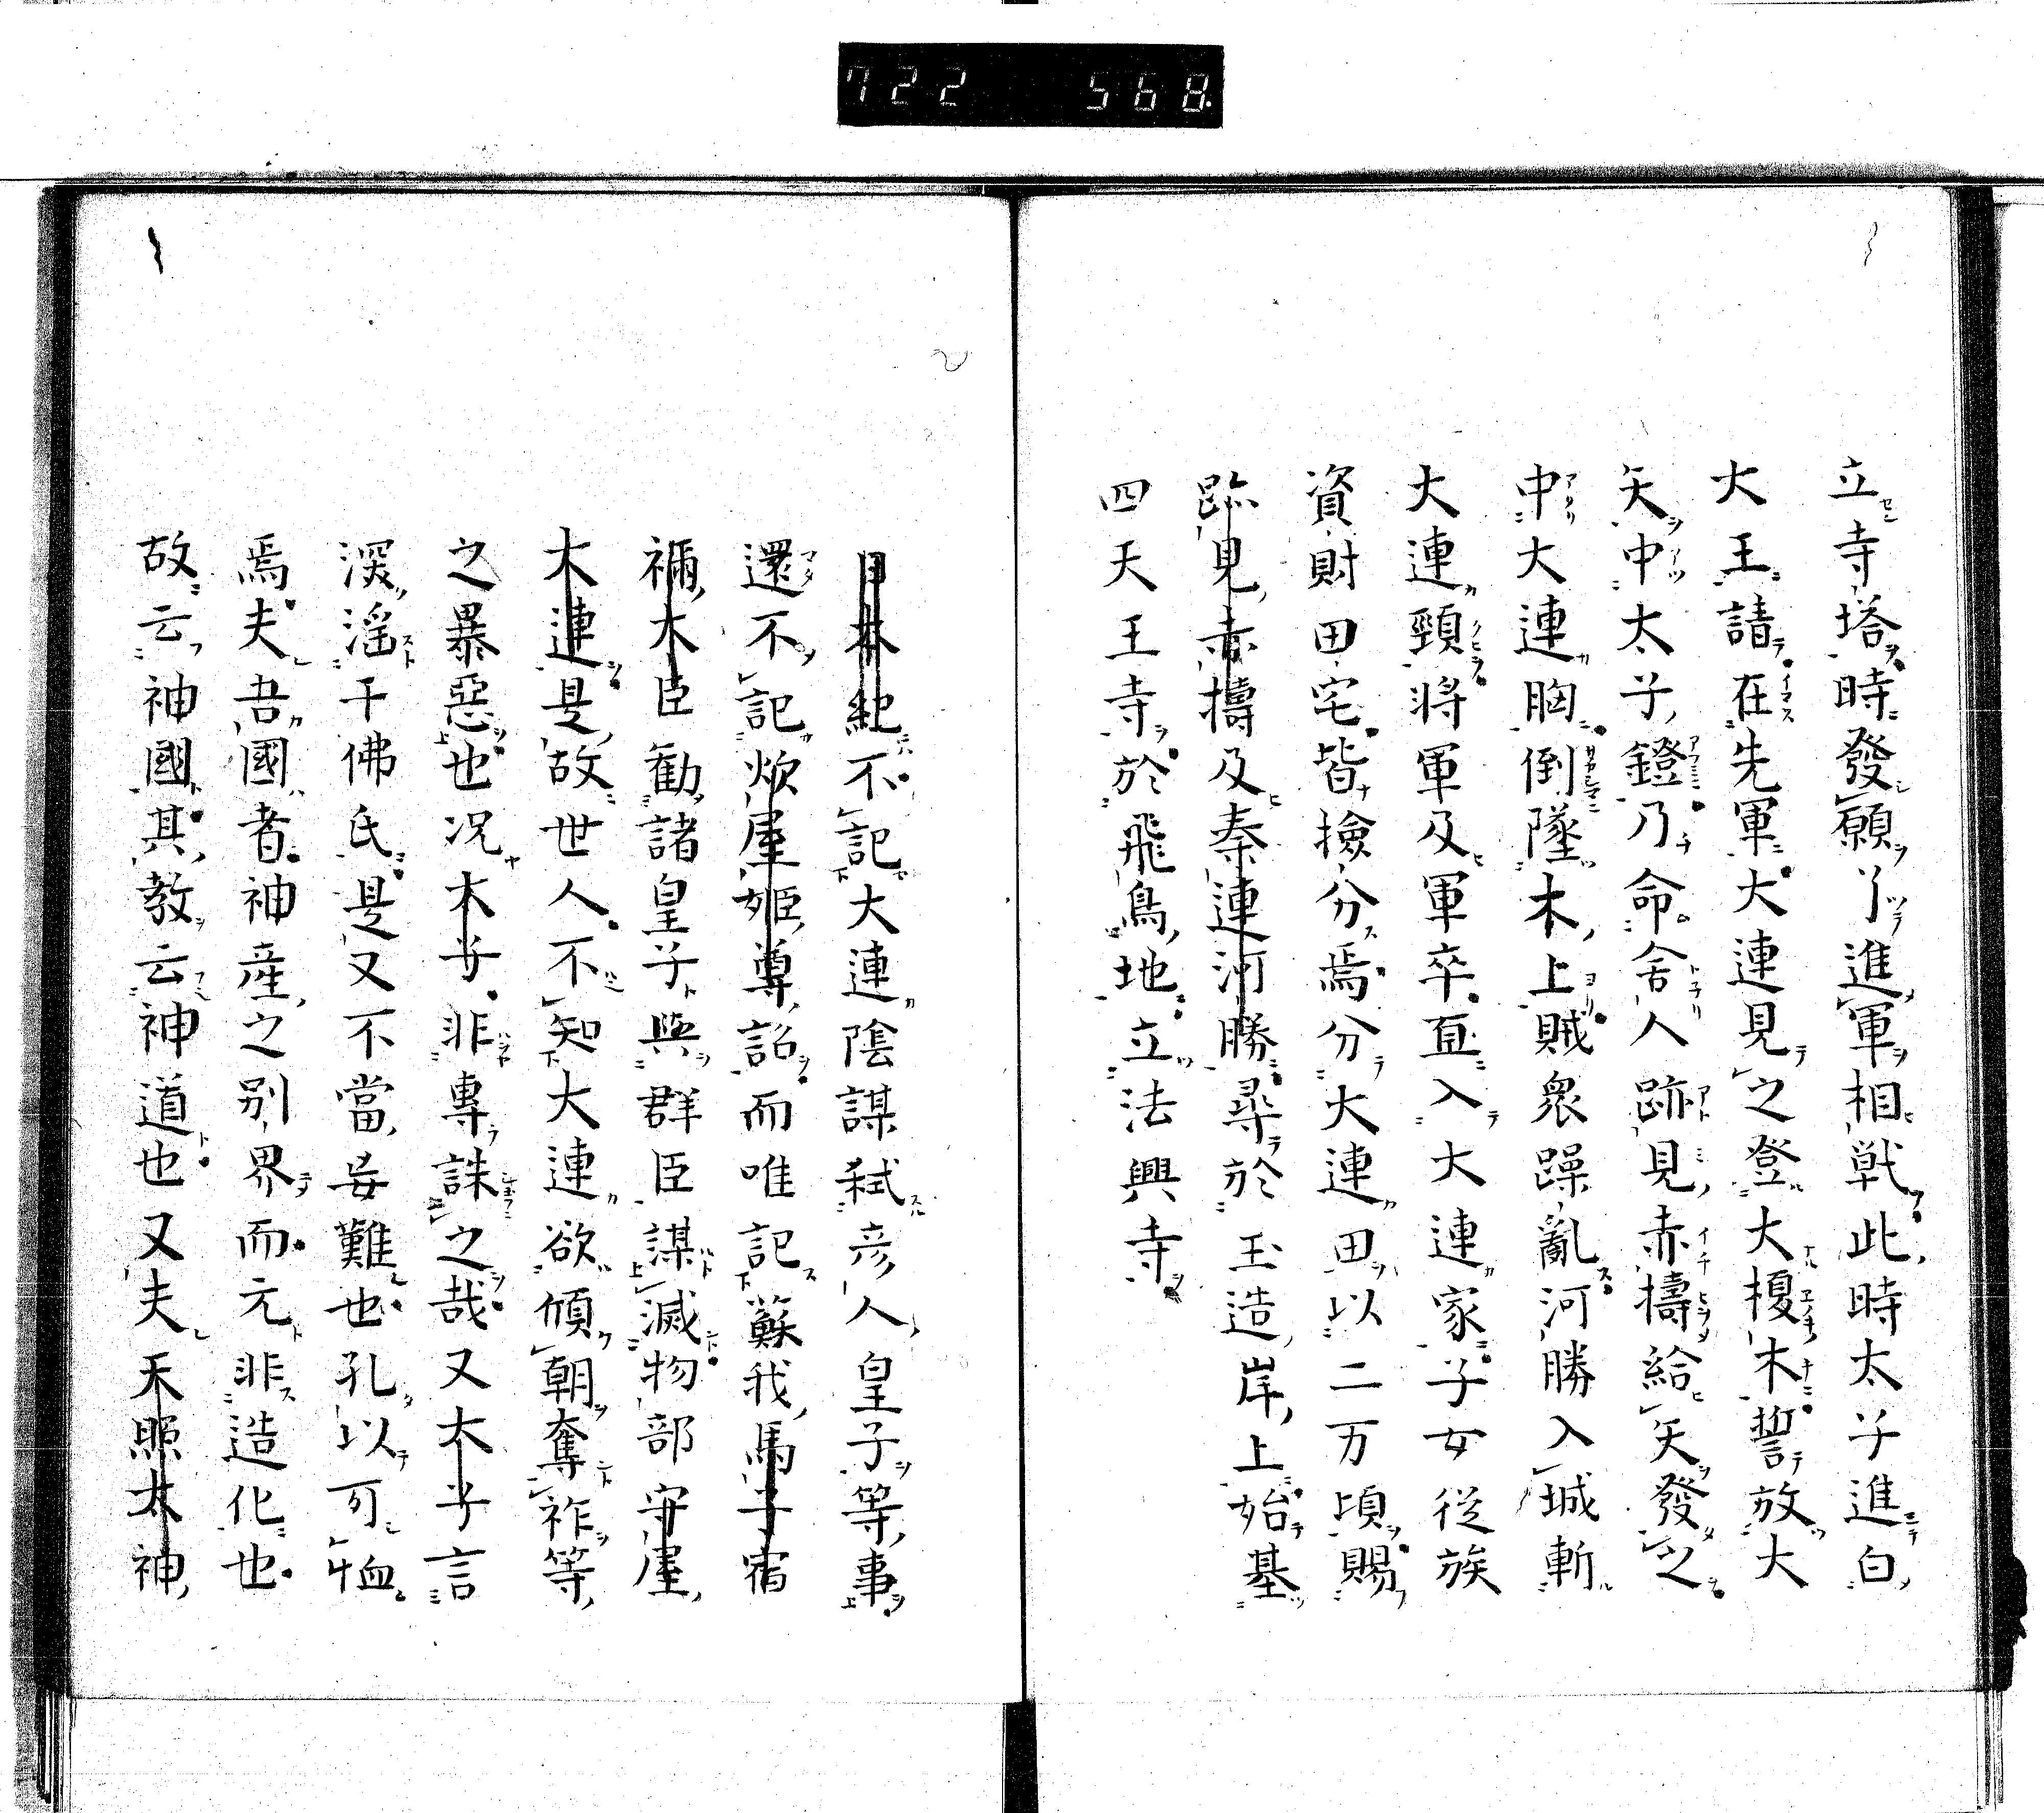 722 568
立寺塔時發願了進軍相戦此時太子進白
大王請在先軍大連見之登大榎木誓放大
矢中太子鐙乃命舍人跡見赤檮給矢發之
中大連胸倒墜木上賊衆躁亂河勝入城斬
大連頸將軍及軍卒直入大連家子女從族
資財田宅皆撿分焉分大連田以二万頃賜
跡見赤檮及秦連河勝尋於玉造岸上始基
四天王寺於飛鳥地立法興寺
日本紀不記大連陰謀弑彦人皇子等事
還不記炊屋姬尊詔而唯記蘇我馬子宿
禰大臣勸諸皇子與群臣謀滅物部守屋
大連是故世人不知大連欲傾朝奪祚等
之暴惡也况太子非專誅之哉又太子言
深滛于佛氏是又不當妄難也孔以可恤
焉夫吾國者神産之别界而元非造化也
故云神國其教云神道也又夫天照太神